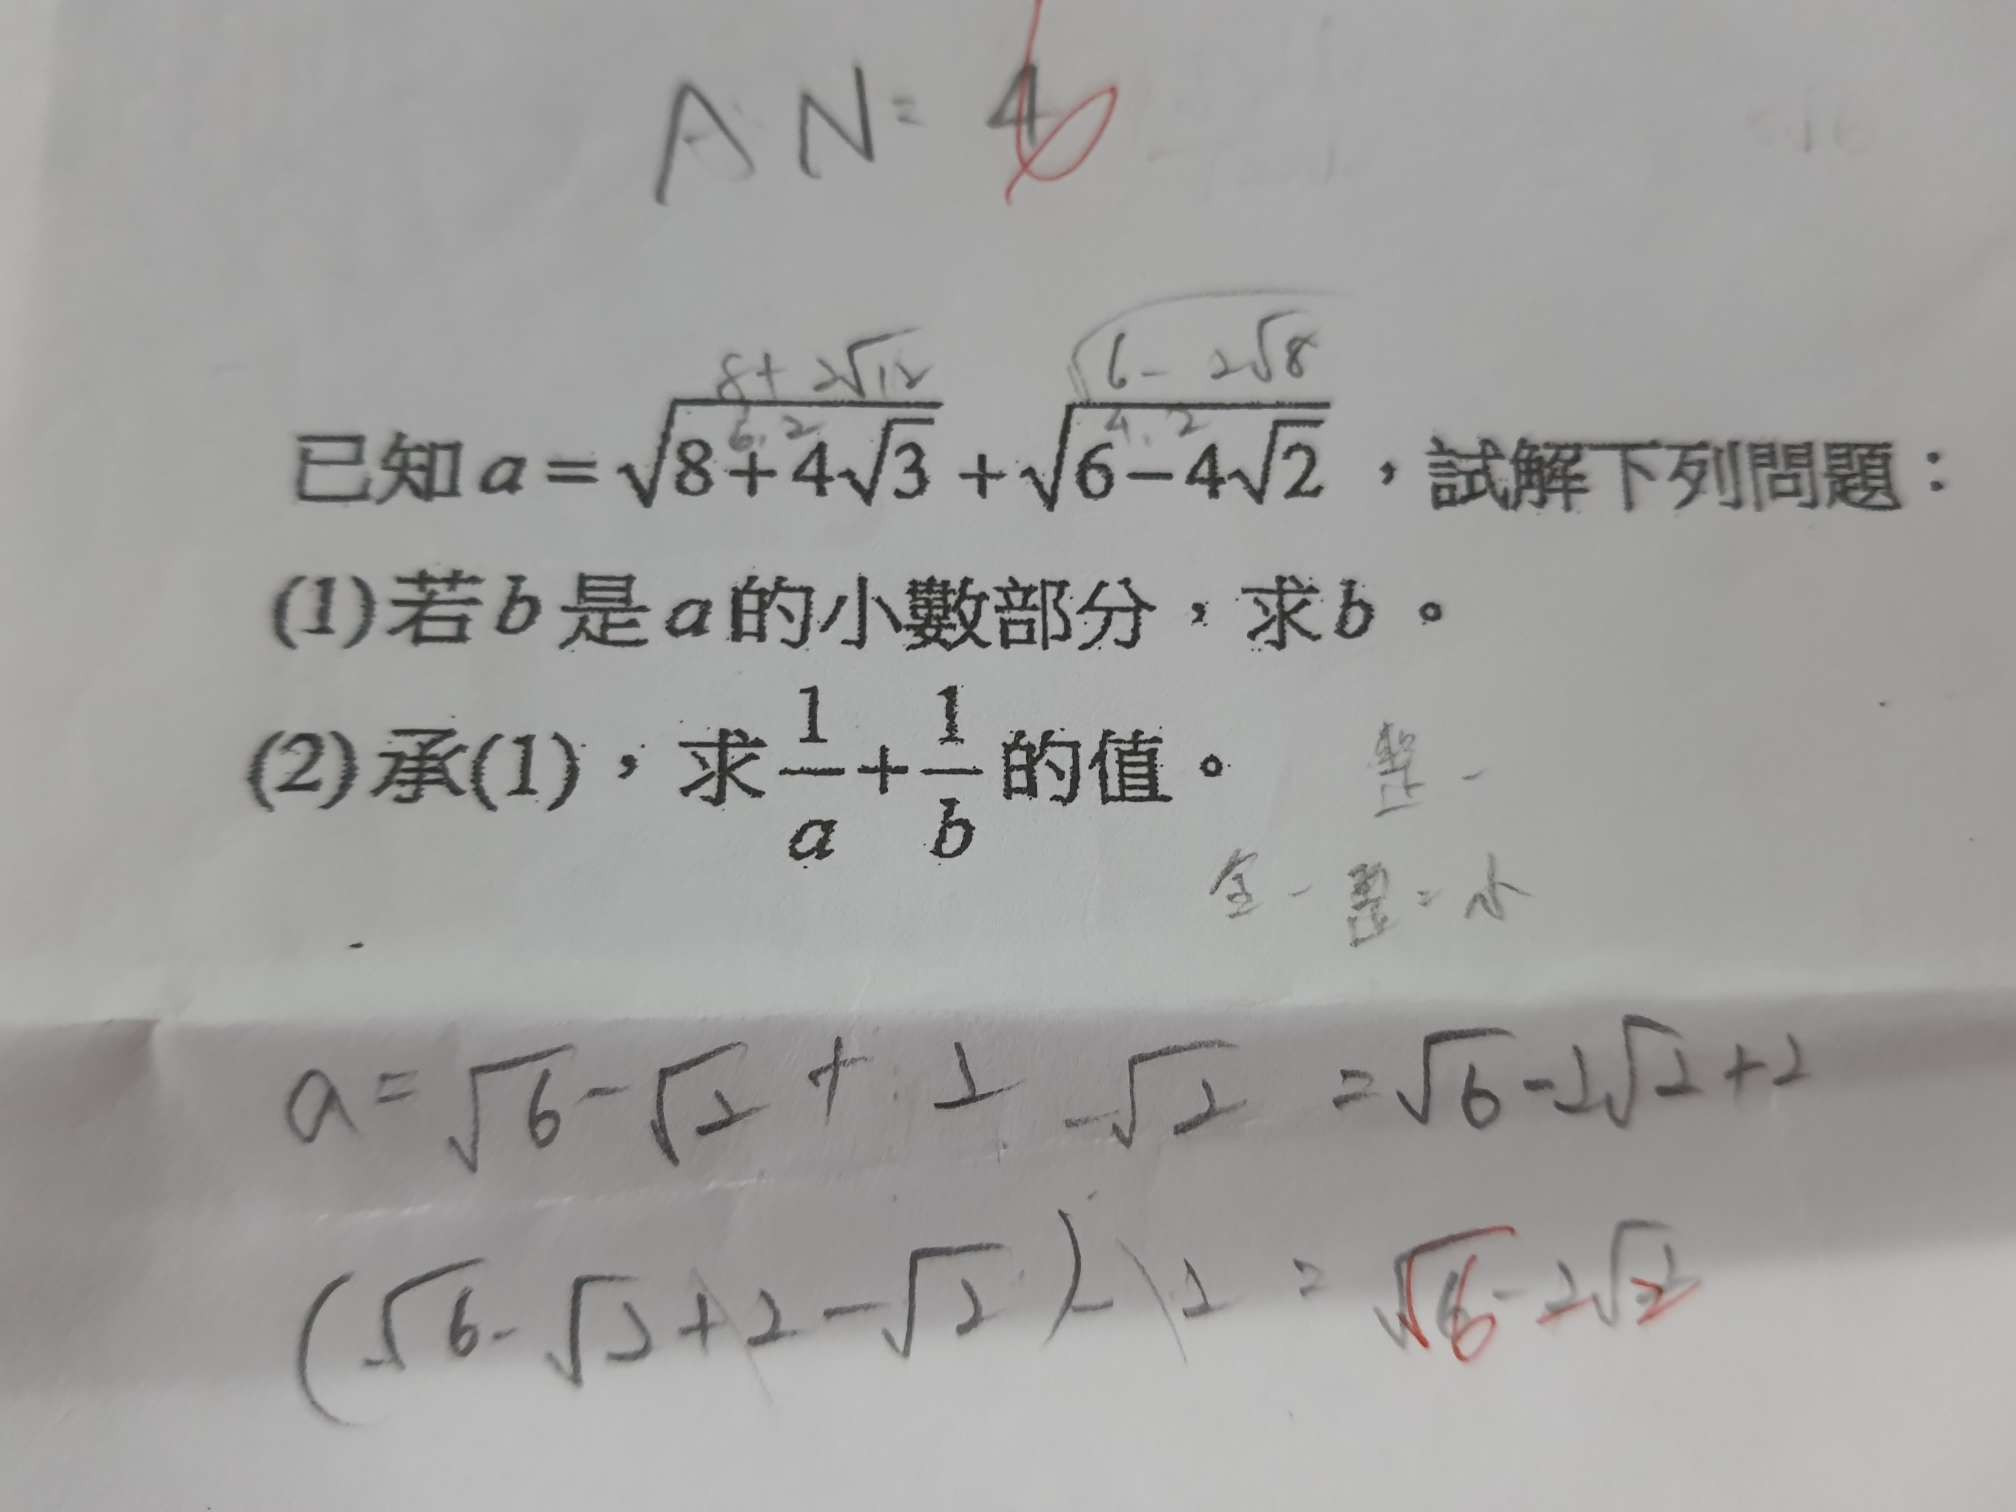 AN = 4
8+ 2√12 √6- 2√8
6.2 4.2
已知 a = √(8+4√3) + √(6-4√2) ，試解下列問題：
(1)若b是a的小數部分，求b。
(2)承(1)，求 1/a + 1/b 的值。
整 -
全 - 整 = 小
a = √6 - √2 + 2 - √2 = √6 - 2√2 + 2
(√6 - √2 + 2 - √2) - 2 = √6 - 2√2